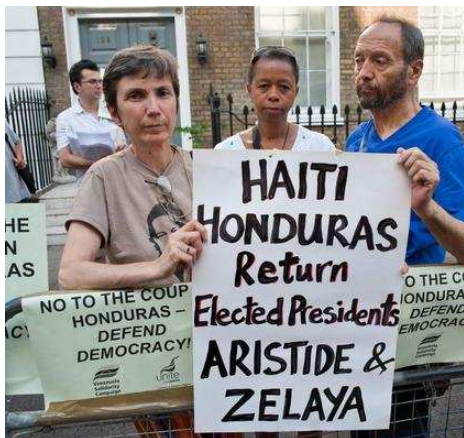 HAITI
HONDURAS
Return
Elected Presidents
ARISTIDE &
ZELAYA
NO TO THE COUP
HONDURAS –
DEFEND
DEMOCRACY!
Venezuela
Solidarity
Campaign
unite
THE
AS
NO TO THE COUP
HONDURAS
DEFEND
DEMOCRACY
Venezuela
Solidarity
Campaign